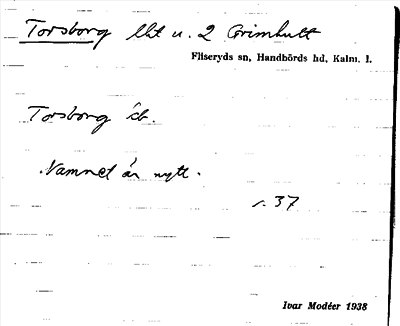 Torsborg lht u. 2 Grimhult
Fliseryds sn, Handbörds hd, Kalm. l.
Torsborg ib.
Namnet är nytt.
s. 37
Ivar Modéer 1938